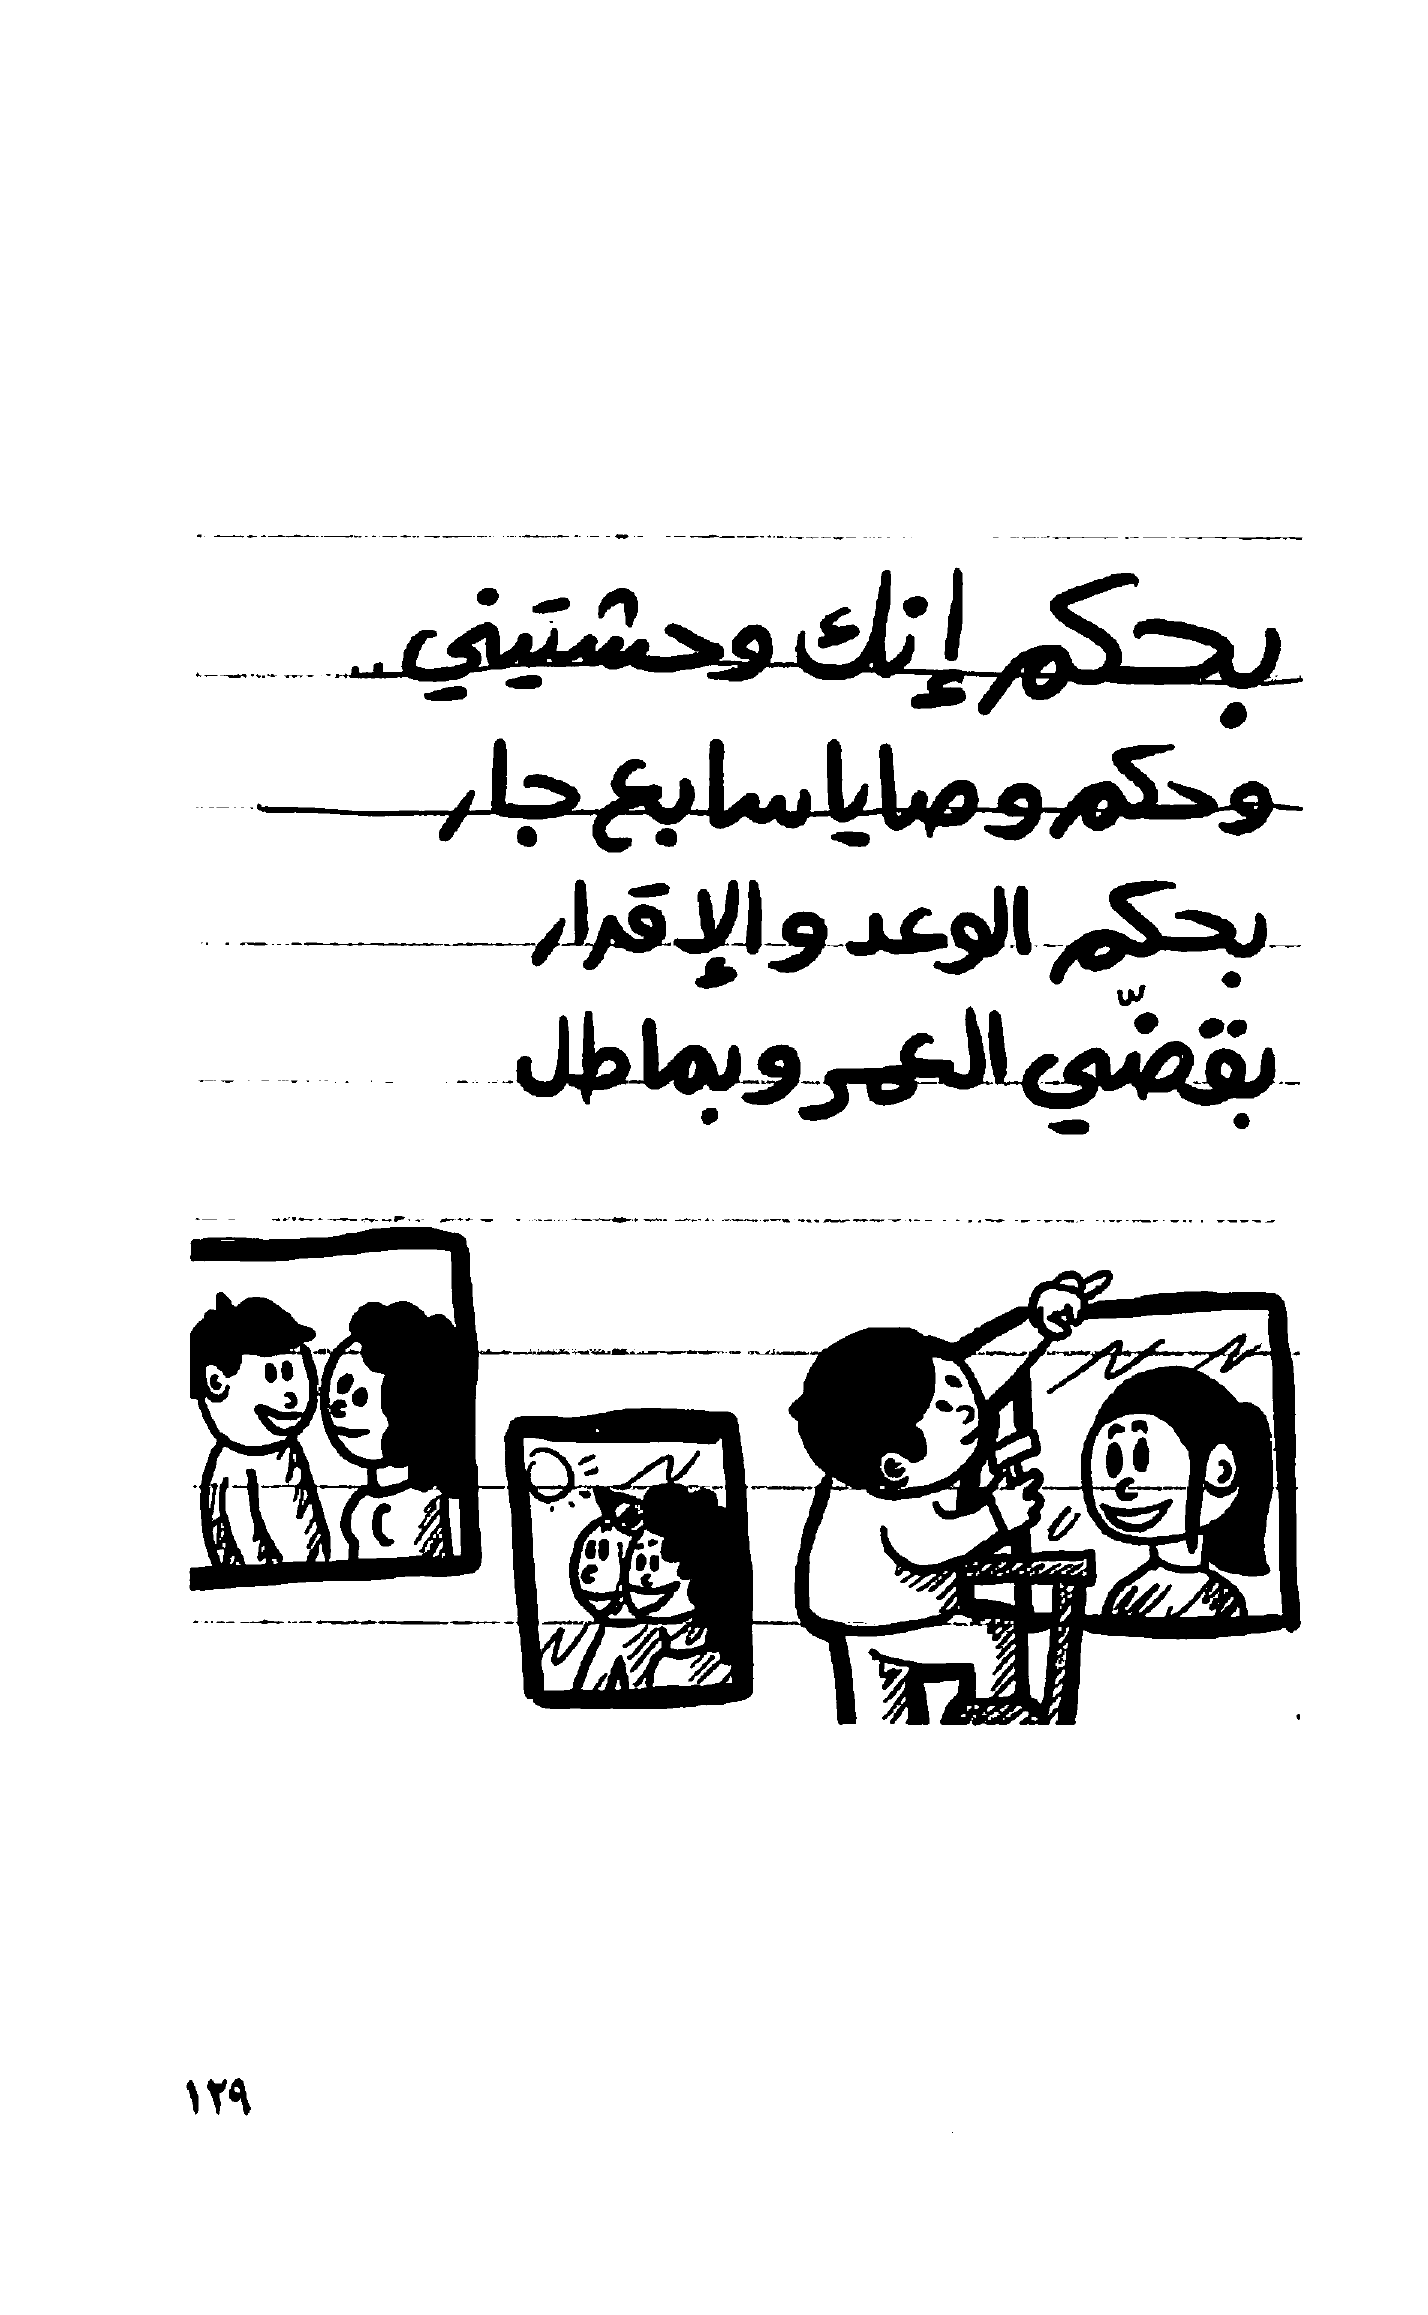 بحكم إنك وحشتيني..
وحكم وصايا سابع جار
بحكم الوعد والإقرار
بقضّي العمر وبماطل
١٢٩